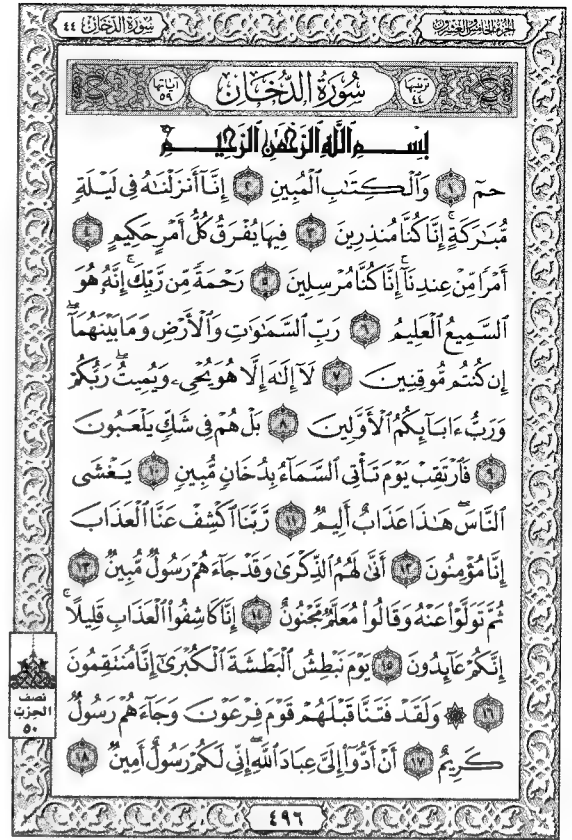 سُورَةُ الدُّخَان ٤٤
الجُزءُ الخَامِسُ وَالعِشرُونَ
ترتيبها ٤٤
سُورَةُ الدُّخَانِ
آياتها ٥٩
بِسْمِ ٱللَّهِ ٱلرَّحْمَٰنِ ٱلرَّحِيمِ
حمٓ ١ وَٱلْكِتَٰبِ ٱلْمُبِينِ ٢ إِنَّآ أَنزَلْنَٰهُ فِى لَيْلَةٍ
مُّبَٰرَكَةٍ ۚ إِنَّا كُنَّا مُنذِرِينَ ٣ فِيهَا يُفْرَقُ كُلُّ أَمْرٍ حَكِيمٍ ٤
أَمْرًا مِّنْ عِندِنَآ ۚ إِنَّا كُنَّا مُرْسِلِينَ ٥ رَحْمَةً مِّن رَّبِّكَ ۚ إِنَّهُۥ هُوَ
ٱلسَّمِيعُ ٱلْعَلِيمُ ٦ رَبِّ ٱلسَّمَٰوَٰتِ وَٱلْأَرْضِ وَمَا بَيْنَهُمَآ ۖ
إِن كُنتُم مُّوقِنِينَ ٧ لَآ إِلَٰهَ إِلَّا هُوَ يُحْىِۦ وَيُمِيتُ ۖ رَبُّكُمْ
وَرَبُّ ءَابَآئِكُمُ ٱلْأَوَّلِينَ ٨ بَلْ هُمْ فِى شَكٍّ يَلْعَبُونَ
٩ فَٱرْتَقِبْ يَوْمَ تَأْتِى ٱلسَّمَآءُ بِدُخَانٍ مُّبِينٍ ١٠ يَغْشَى
ٱلنَّاسَ ۖ هَٰذَا عَذَابٌ أَلِيمٌ ١١ رَّبَّنَا ٱكْشِفْ عَنَّا ٱلْعَذَابَ
إِنَّا مُؤْمِنُونَ ١٢ أَنَّىٰ لَهُمُ ٱلذِّكْرَىٰ وَقَدْ جَآءَهُمْ رَسُولٌ مُّبِينٌ ١٣
ثُمَّ تَوَلَّوْا۟ عَنْهُ وَقَالُوا۟ مُعَلَّمٌ مَّجْنُونٌ ١٤ إِنَّا كَاشِفُوا۟ ٱلْعَذَابِ قَلِيلًا ۚ
إِنَّكُمْ عَآئِدُونَ ١٥ يَوْمَ نَبْطِشُ ٱلْبَطْشَةَ ٱلْكُبْرَىٰٓ إِنَّا مُنتَقِمُونَ
١٦ ۞ وَلَقَدْ فَتَنَّا قَبْلَهُمْ قَوْمَ فِرْعَوْنَ وَجَآءَهُمْ رَسُولٌ
كَرِيمٌ ١٧ أَنْ أَدُّوٓا۟ إِلَىَّ عِبَادَ ٱللَّهِ ۖ إِنِّى لَكُمْ رَسُولٌ أَمِينٌ ١٨
نصف
الحزب
٥٠
٤٩٦